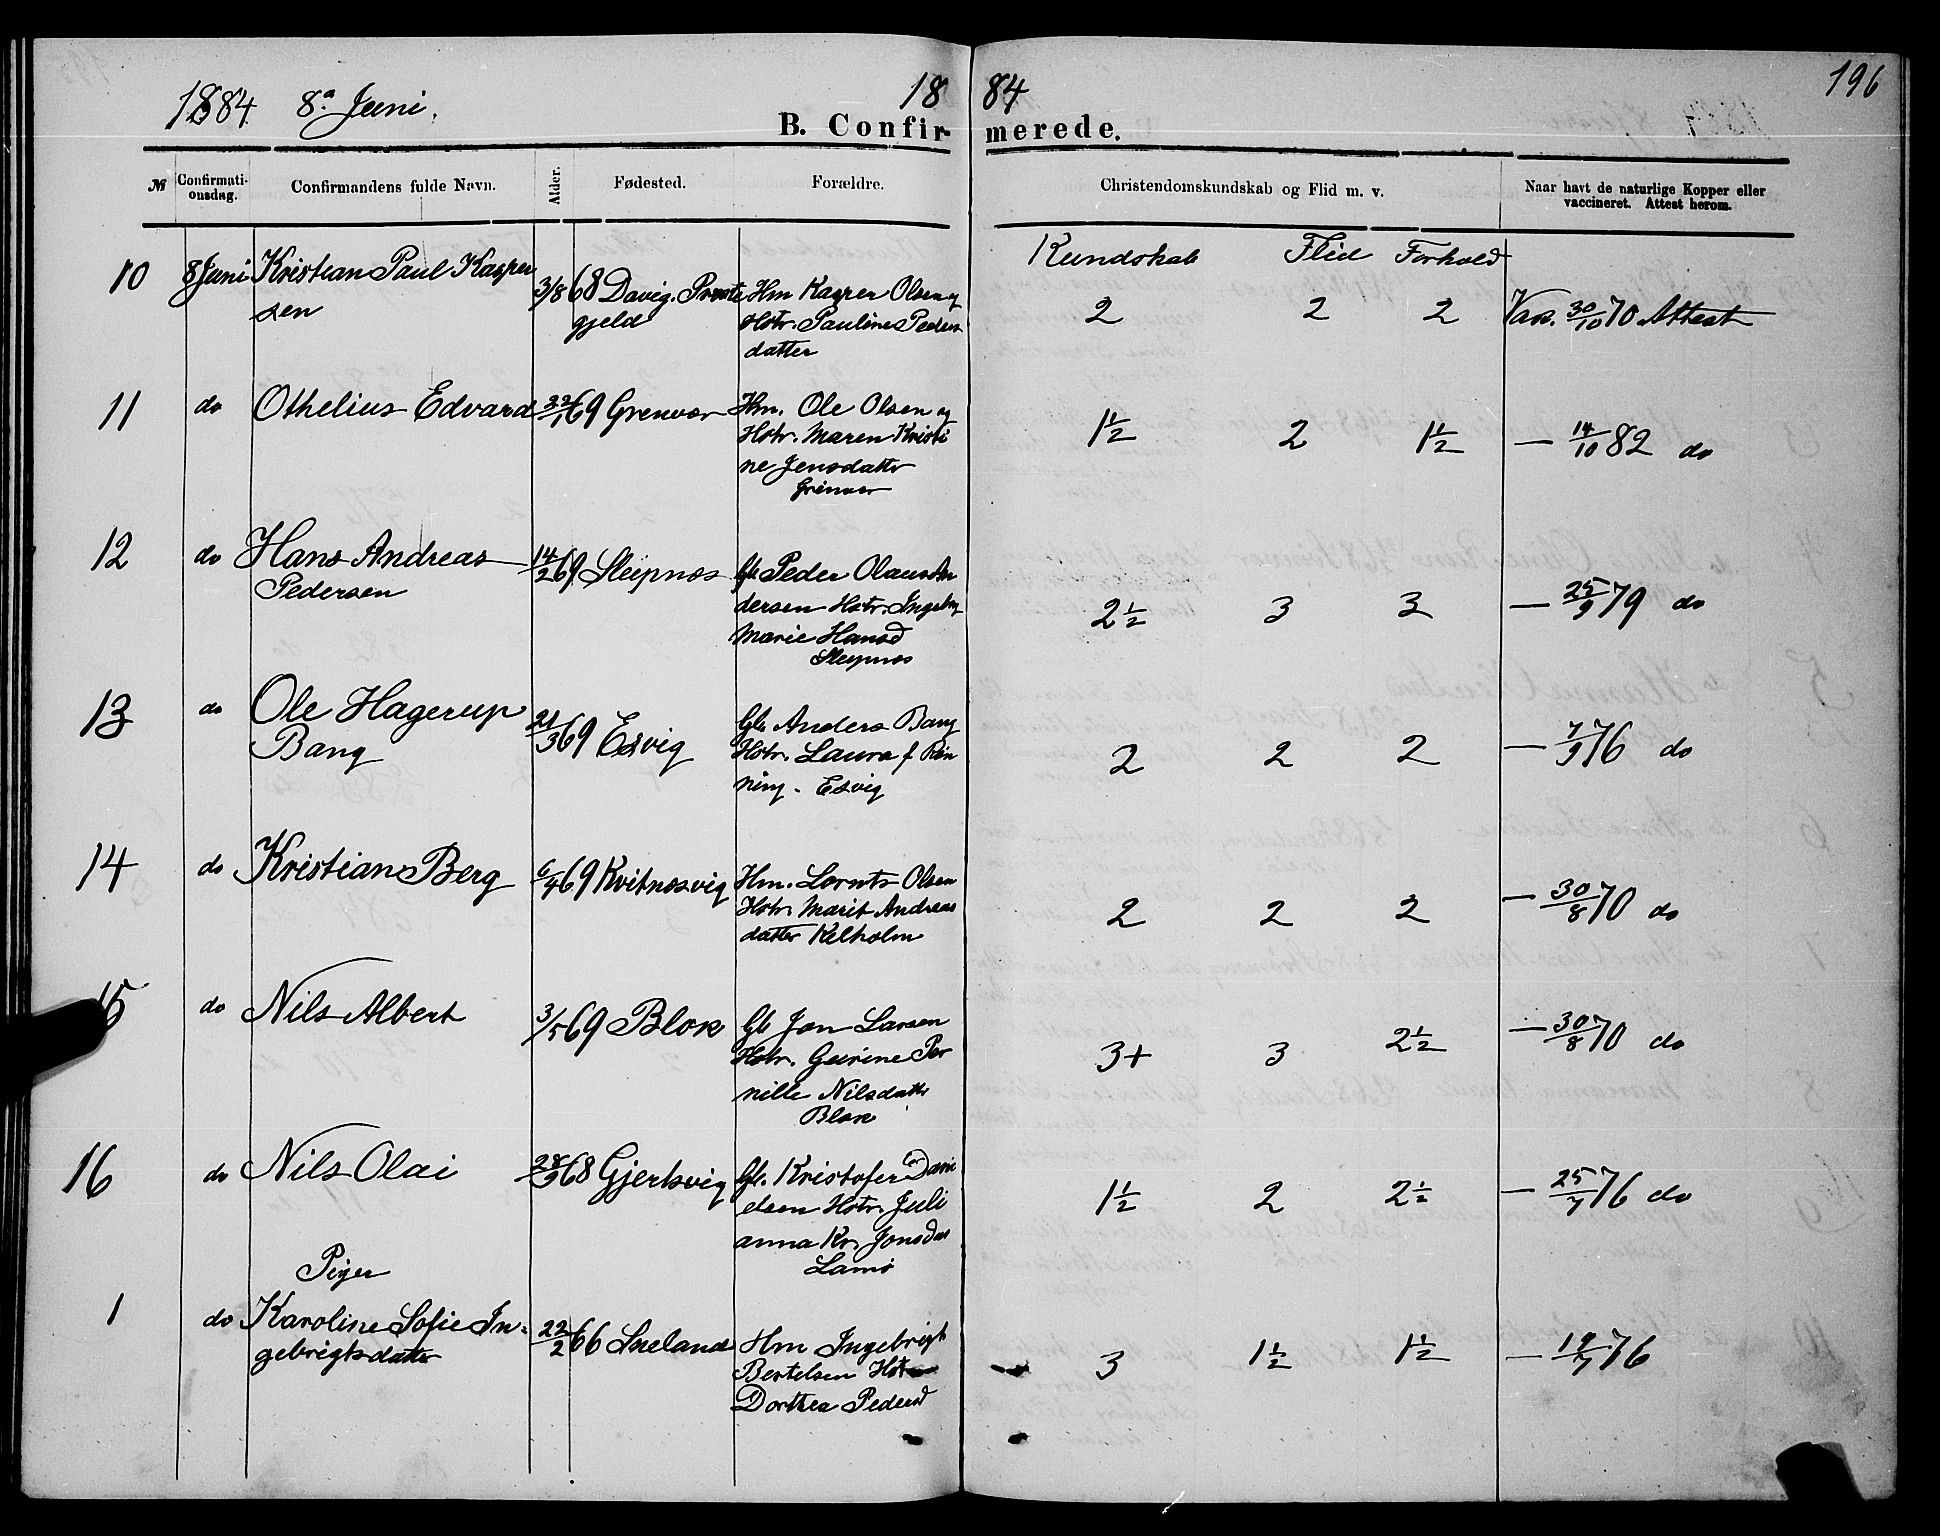 1884 8de Juni.
18 84
196
B. Confirmerede.
№ Confirmationsdag. Confirmandens fulde Navn. Alder. Fødested. Forældre. Christendomskundskab og Flid m. v. Naar havt de naturlige Kopper eller vaccineret. Attest herom.
Kundskab Flid Forhold
10 8 Juni Kristian Paul Kasper
sen
3/8 68 Davig. Præste
gjeld
Hm Kasper Olsen og
Hstr. Pauline Peders
datter
2 2 2 Vac. 30/10 70 Attest
11 do Othelius Edvard 22/1 69 Grenvær
Hm. Ole Olsen og
Hstr. Maren Kristi
ne Jensdatter
Grinvær
1½ 2 1½ — 14/10 82 do
12 do Hans Andreas
Pedersen
14/2 69 Sleipnæs
Gb. Peder Olaus An
dersen Hstr. Ingebrg
Marie Hansd
Sleipnæs
2½ 3 3 — 25/9 79 do
13 do Ole Hagerup
Bang
21/3 69 Esvig
Gb. Anders Bang
Hstr. Laura f. Røn
ning. Esvig
2 2 2 — 7/9 76 do
14 do Kristian Berg 6/4 69 Kvitnæsvig
Hm. Lornts Olsen
Hstr. Marit Andreas
datter Kelholm
2 2 2 — 30/8 70 do
15 do Nils Albert 3/5 69 Blok
Gb Jon Larsen
Hstr. Geirine Per
nille Nilsdattr
Blok
3+ 3 2½ — 30/8 70 do
16 do Nils Olai 28/9 68 Gjertsvig
Gb. Kristofer Dani
elsen Hstr. Juli
anna Kr. Jonsdat
Lamø
1½ 2 2½ — 25/7 76 do
Piger
1 do Karoline Sofie In-
gebrigtsdatter
22/2 66 Sneland
Hm Ingebrigt
Bertelsen Hstr
Dorthea Pedersd
3 1½ 1½ — 19/7 76